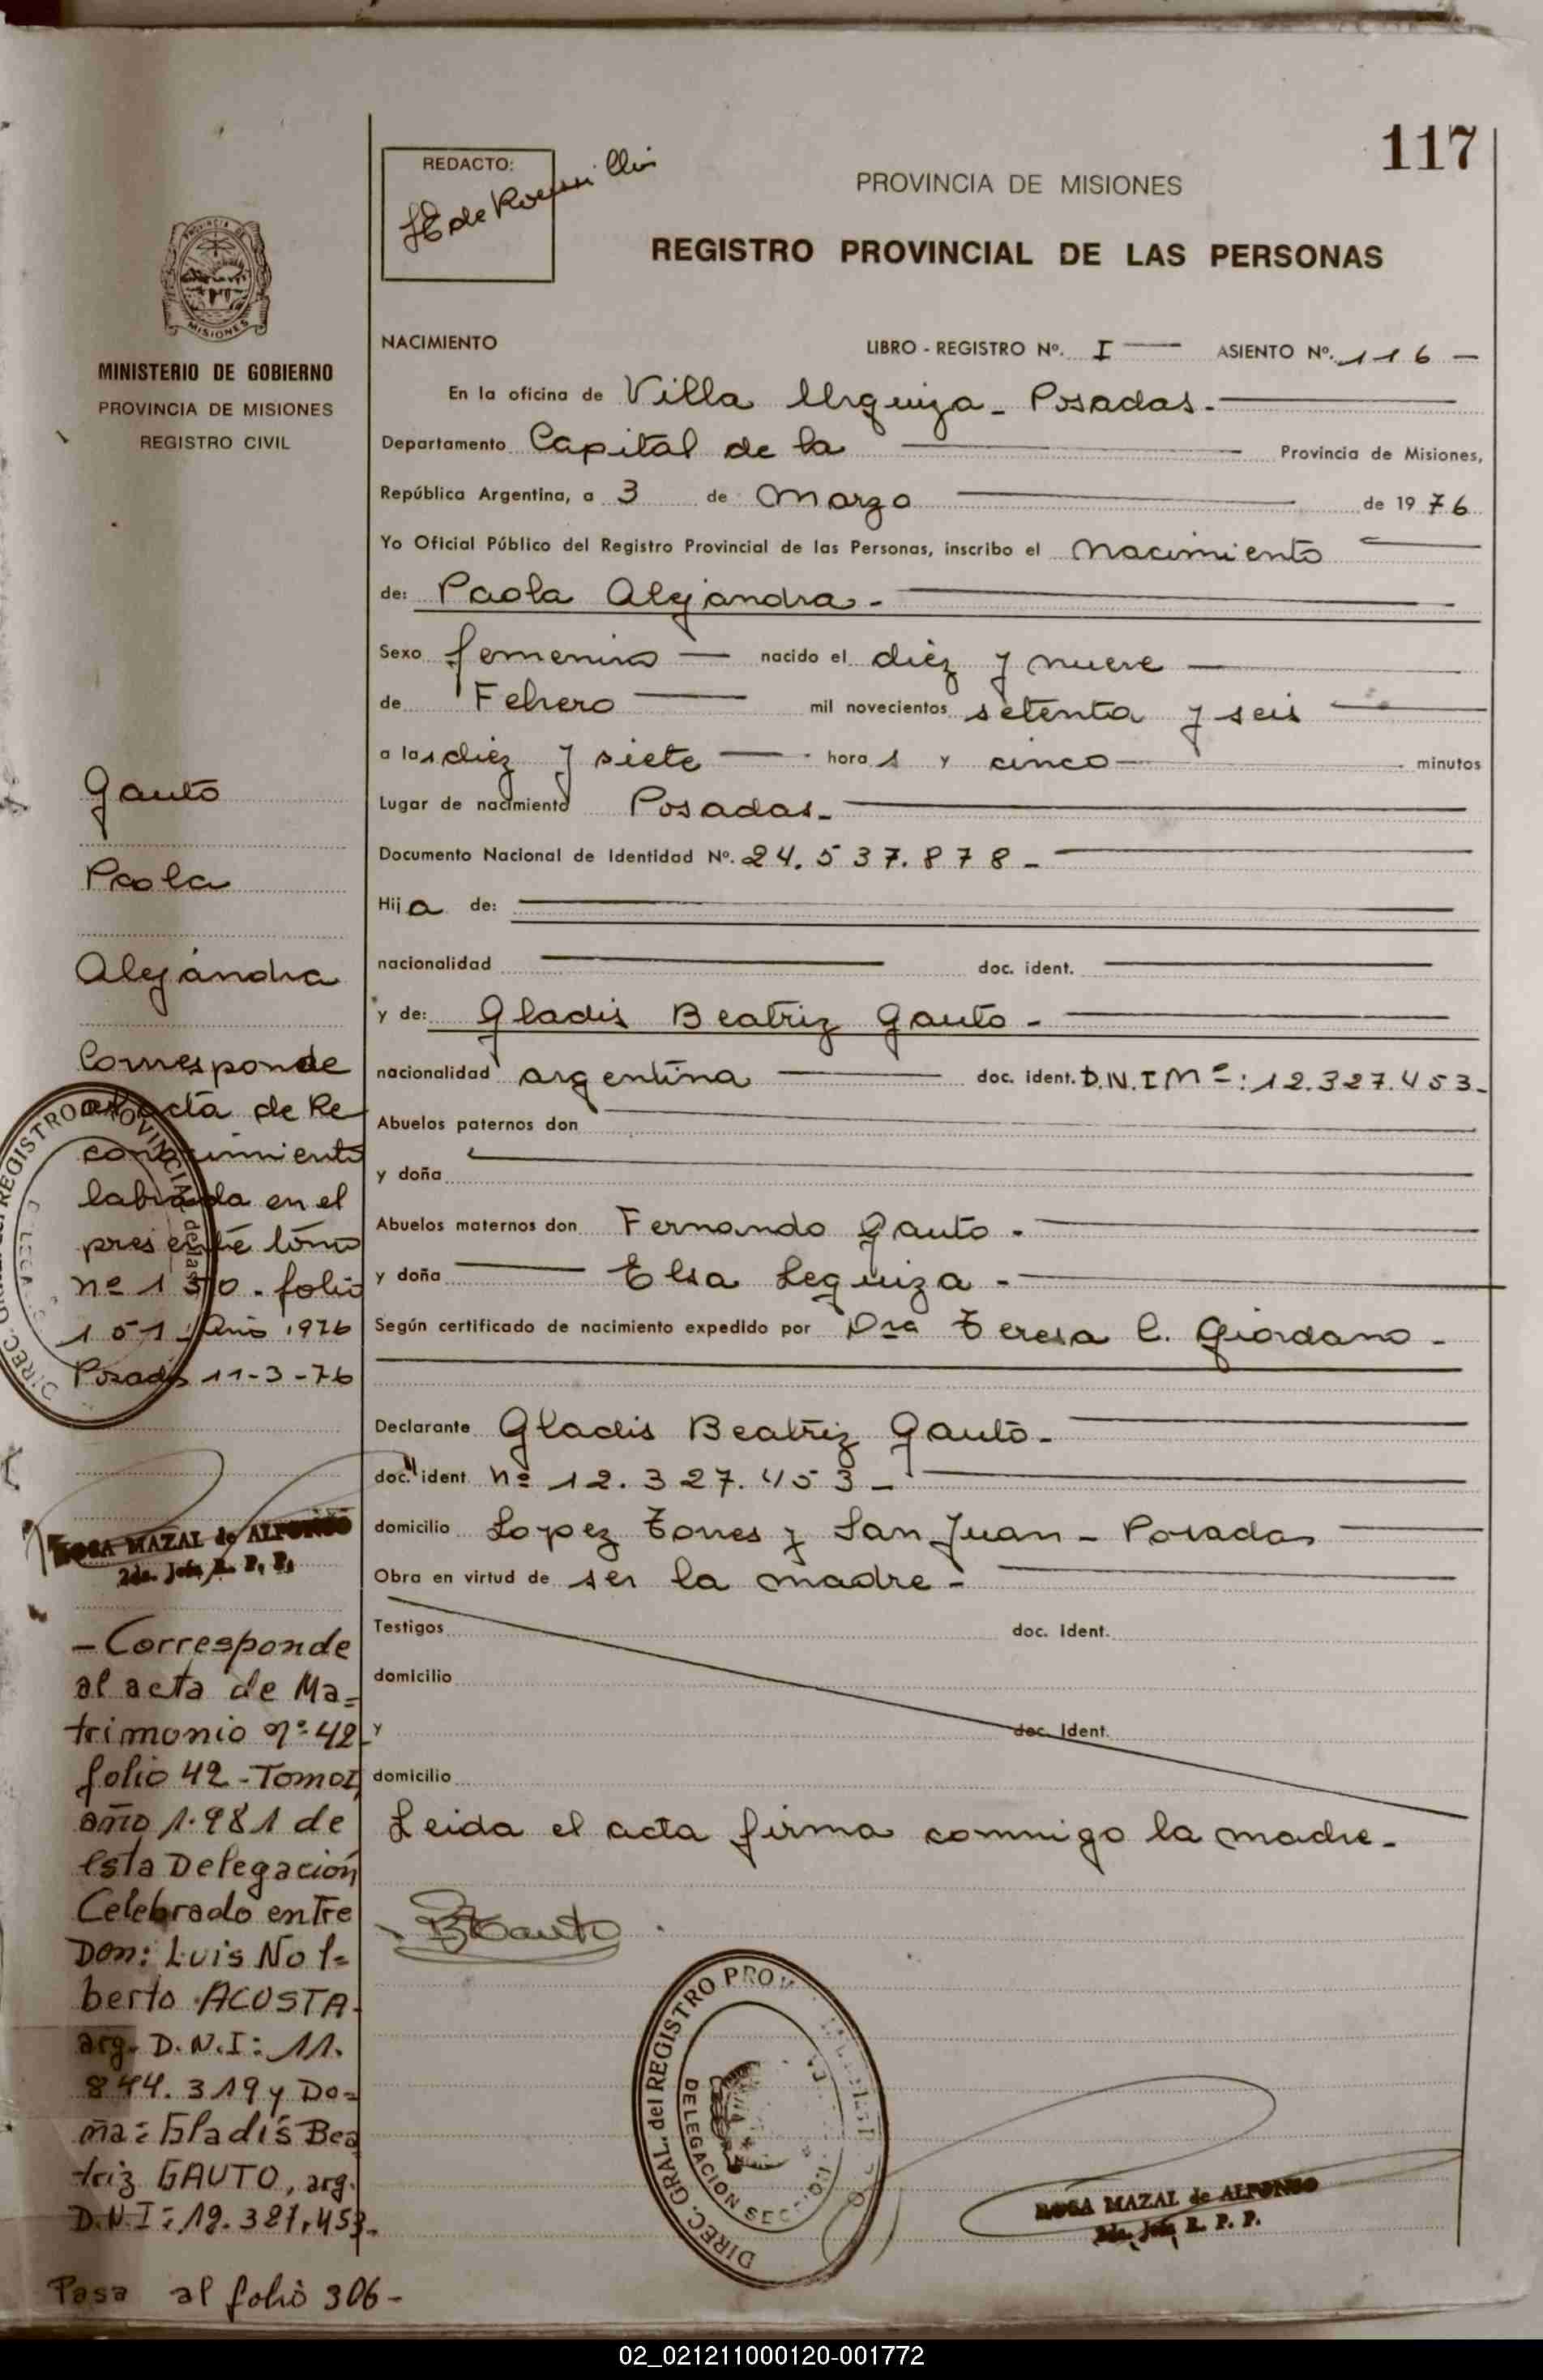 117
REDACTO:
PROVINCIA DE MISIONES
REGISTRO PROVINCIAL DE LAS PERSONAS
PROVINCIA DE
MISIONES
MINISTERIO DE GOBIERNO
PROVINCIA DE MISIONES
REGISTRO CIVIL
NACIMIENTO LIBRO - REGISTRO Nº. I ASIENTO Nº. 116 -
En la oficina de Villa Urquiza - Posadas. -
Departamento Capital de la Provincia de Misiones,
República Argentina, a 3 de Marzo de 1976
Yo Oficial Público del Registro Provincial de las Personas, inscribo el nacimiento
de: Paola Alejandra. -
Sexo femenino nacido el diez y nueve
de Febrero mil novecientos setenta y seis
a las diez y siete horas y cinco minutos
Lugar de nacimiento Posadas. -
Documento Nacional de Identidad Nº. 24.537.878 -
Hija de:
nacionalidad doc. ident.
y de: Gladis Beatriz Gauto -
nacionalidad argentina doc. ident. D.N.I Nº: 12.327.453 -
Abuelos paternos don
y doña
Abuelos maternos don Fernando Gauto -
y doña Elsa Leguiza -
Según certificado de nacimiento expedido por Dra Teresa C. Giordano -
Declarante Gladis Beatriz Gauto -
doc. ident Nº 12.327.453 -
domicilio Lopez Torres y San Juan - Posadas
Obra en virtud de ser la madre -
Testigos doc. Ident.
domicilio
y doc. Ident.
domicilio
Leida el acta firma conmigo la madre -
BGauto
DIREC. GRAL. del REGISTRO PROV
DELEGACION SECCION
ROSA MAZAL de ALFONSO
2da. Jefa R. P. P.
Gauto
Paola
Alejandra
Corresponde
al acta de Re
conocimiento
labrada en el
presente tomo
nº 150 - folio
151 - Año 1976
Posadas 11-3-76
ROSA MAZAL de ALFONSO
2da. Jefa R. P. P.
- Corresponde
al acta de Ma=
trimonio nº 42
folio 42 - Tomo I
año 1.981 de
esta Delegación
Celebrado entre
Don: Luis Nol=
berto ACOSTA
arg. D.N.I: 11.
844.319 y Do=
ña: Gladis Bea
triz GAUTO, arg.
D.N.I: 12.327.453.
Pasa al folio 306 -
02_021211000120-001772